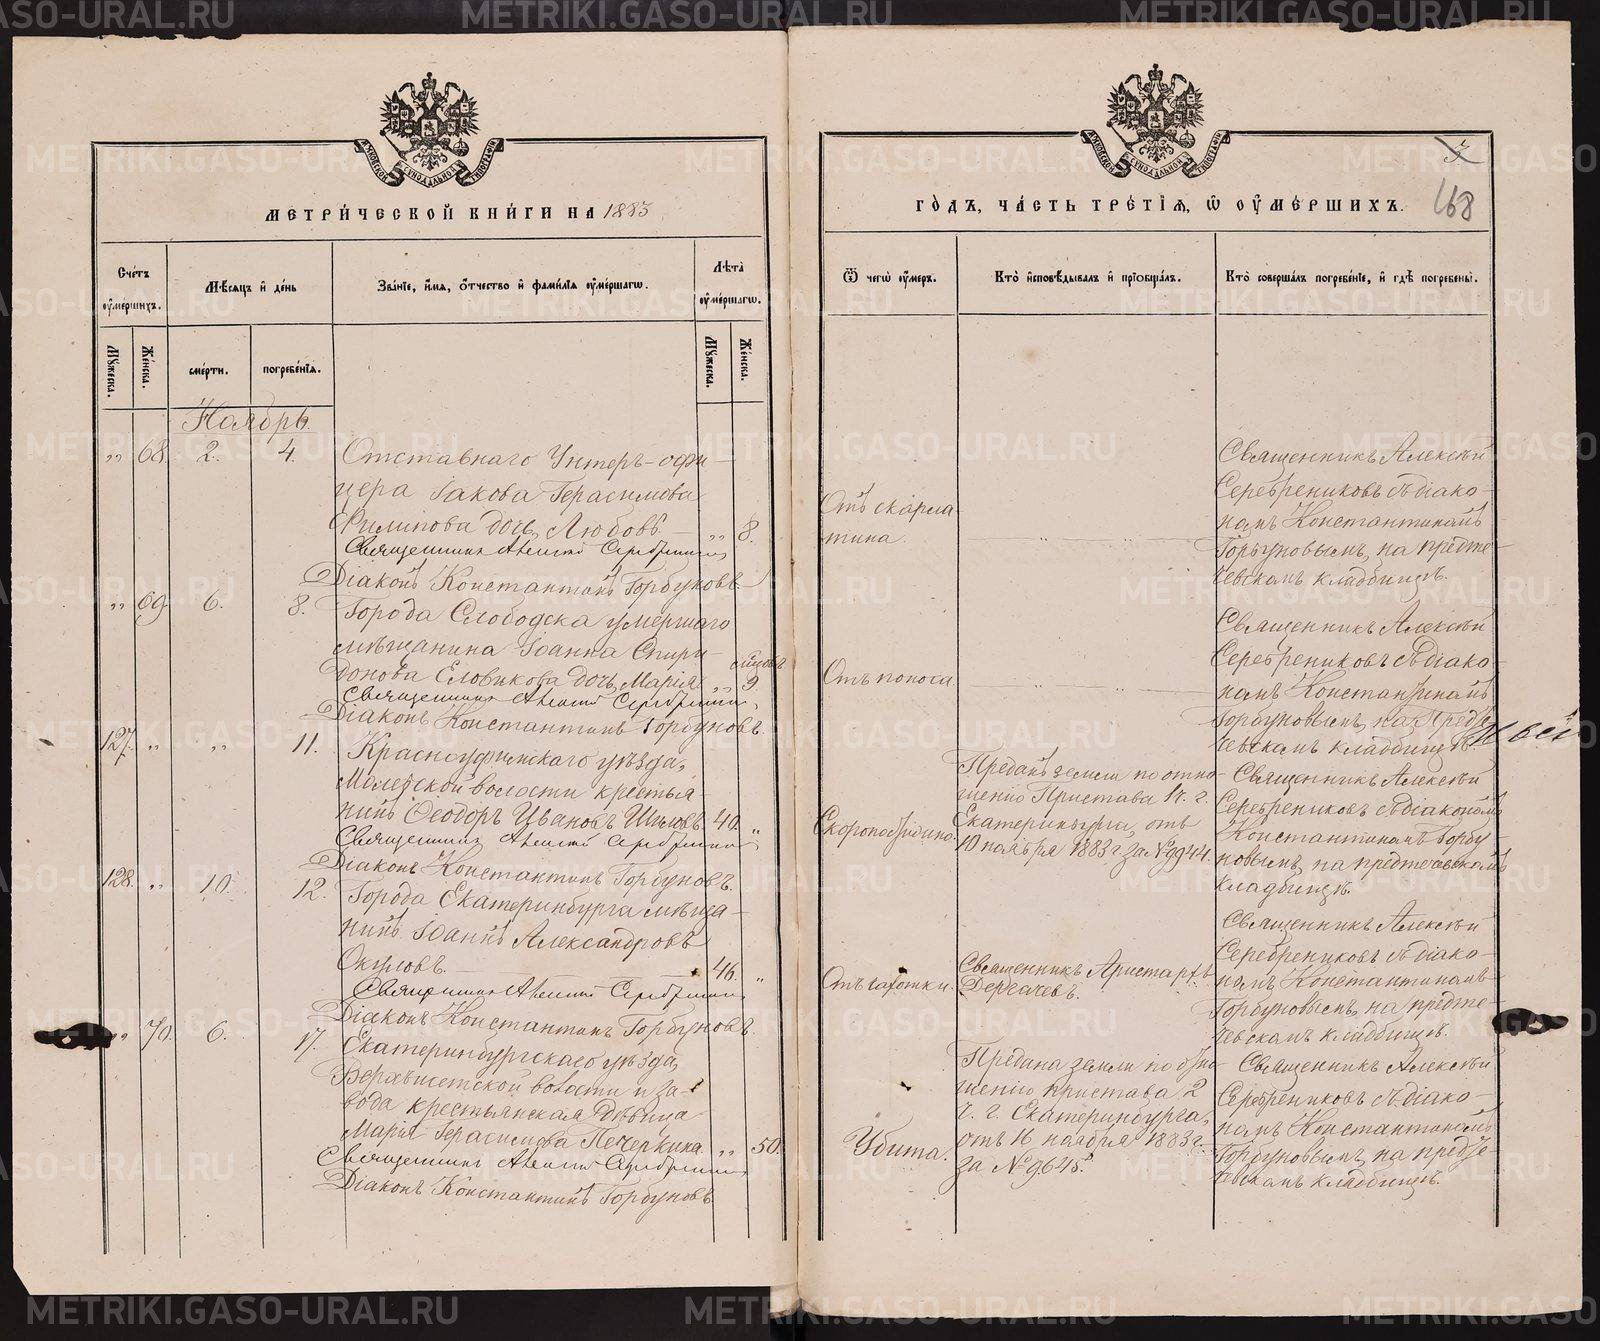 МЕТРИ́ЧЕСКОЙ КНИ́ГИ НА 1883
Сче́тъ оу҆ме́ршихъ.
Мѣ́сяцъ и҆ де́нь
Зва́нїе, и҆́мя, ѻ҆́тчество и҆ фами́лїя оу҆ме́ршагѡ.
Лѣ́та оу҆ме́ршагѡ.
Мꙋ́жеска.
Же́нска.
сме́рти.
погребе́нїя.
Мꙋ́жеска.
Же́нска.
Ноябрь.
„ 68. 2. 4. Отставнаго Унтеръ-офи-
цера Іакова Герасимова
Филипова дочь, Любовь — „ 8.
Священникъ Алексій Серебрениковъ
Діаконъ Константинъ Горбуновъ.
„ 69. 6. 8. Города Слободска умершаго
мѣщанина Іоанна Спири-
донова Еловикова дочь, Марія „ 9
Священникъ Алексій Серебрениковъ
Діаконъ Константинъ Горбуновъ.
127. „ „ 11. Красноуфимскаго уѣзда,
волости крестья-
нинъ Ѳеодоръ Ивановъ 40. „
Священникъ Алексій Серебрениковъ
Діаконъ Константинъ Горбуновъ.
128. „ 10. 12. Города Екатеринбурга мѣща-
нинъ Іоаннъ Александровъ
Окуловъ. 46. „
Священникъ Алексій Серебрениковъ
Діаконъ Константинъ Горбуновъ.
„ 70. 6. 17. Екатеринбургскаго уѣзда,
Верхъисетской волости и за-
вода крестьянская дѣвица
Марья Герасимова Печеркина. „ 50.
Священникъ Алексій Серебрениковъ
Діаконъ Константинъ Горбуновъ
ГО́ДЪ, ЧА́СТЬ ТРЕ́ТЇЯ, Ѡ҆ ОУ҆МЕ́РШИХЪ.
168
Ѿ чегѡ̀ оу҆́меръ.
Кто̀ и҆сповѣ́дывалъ и҆ прїѡбща́лъ.
Кто̀ соверша́лъ погребе́нїе, и҆ гдѣ̀ погребены̀.
Отъ скарла-
тина.
Священникъ Алексѣй
Серебрениковъ съ діако-
номъ Константиномъ
Горбуновымъ, на предте-
чевскомъ кладбищѣ.
Отъ поноса.
Священникъ Алексѣй
Серебрениковъ съ діако-
номъ Константиномъ
Горбуновымъ, на Предте-
чевскомъ кладбищѣ.
Скоропостижно.
Преданъ землѣ по отно-
шенію Пристава 1 ч. г.
Екатеринбурга, отъ
10 ноября 1883 г. за № 9944.
Священникъ Алексѣй
Серебрениковъ съ діакономъ
Константиномъ Горбу-
новымъ, на предтечевскомъ
кладбищѣ.
Отъ чахотки.
Священникъ Аристархъ
Дергачевъ.
Священникъ Алексѣй
Серебрениковъ съ діако-
номъ Константиномъ
Горбуновымъ, на предте-
чевскомъ кладбищѣ.
Убита.
Предана землѣ по отно-
шенію пристава 2
ч. г. Екатеринбурга,
отъ 16 ноября 1883 г.
за № 9645.
Священникъ Алексѣй
Серебрениковъ съ діако-
номъ Константиномъ
Горбуновымъ, на предте-
чевскомъ кладбищѣ.
METRIKI.GASO-URAL.RU